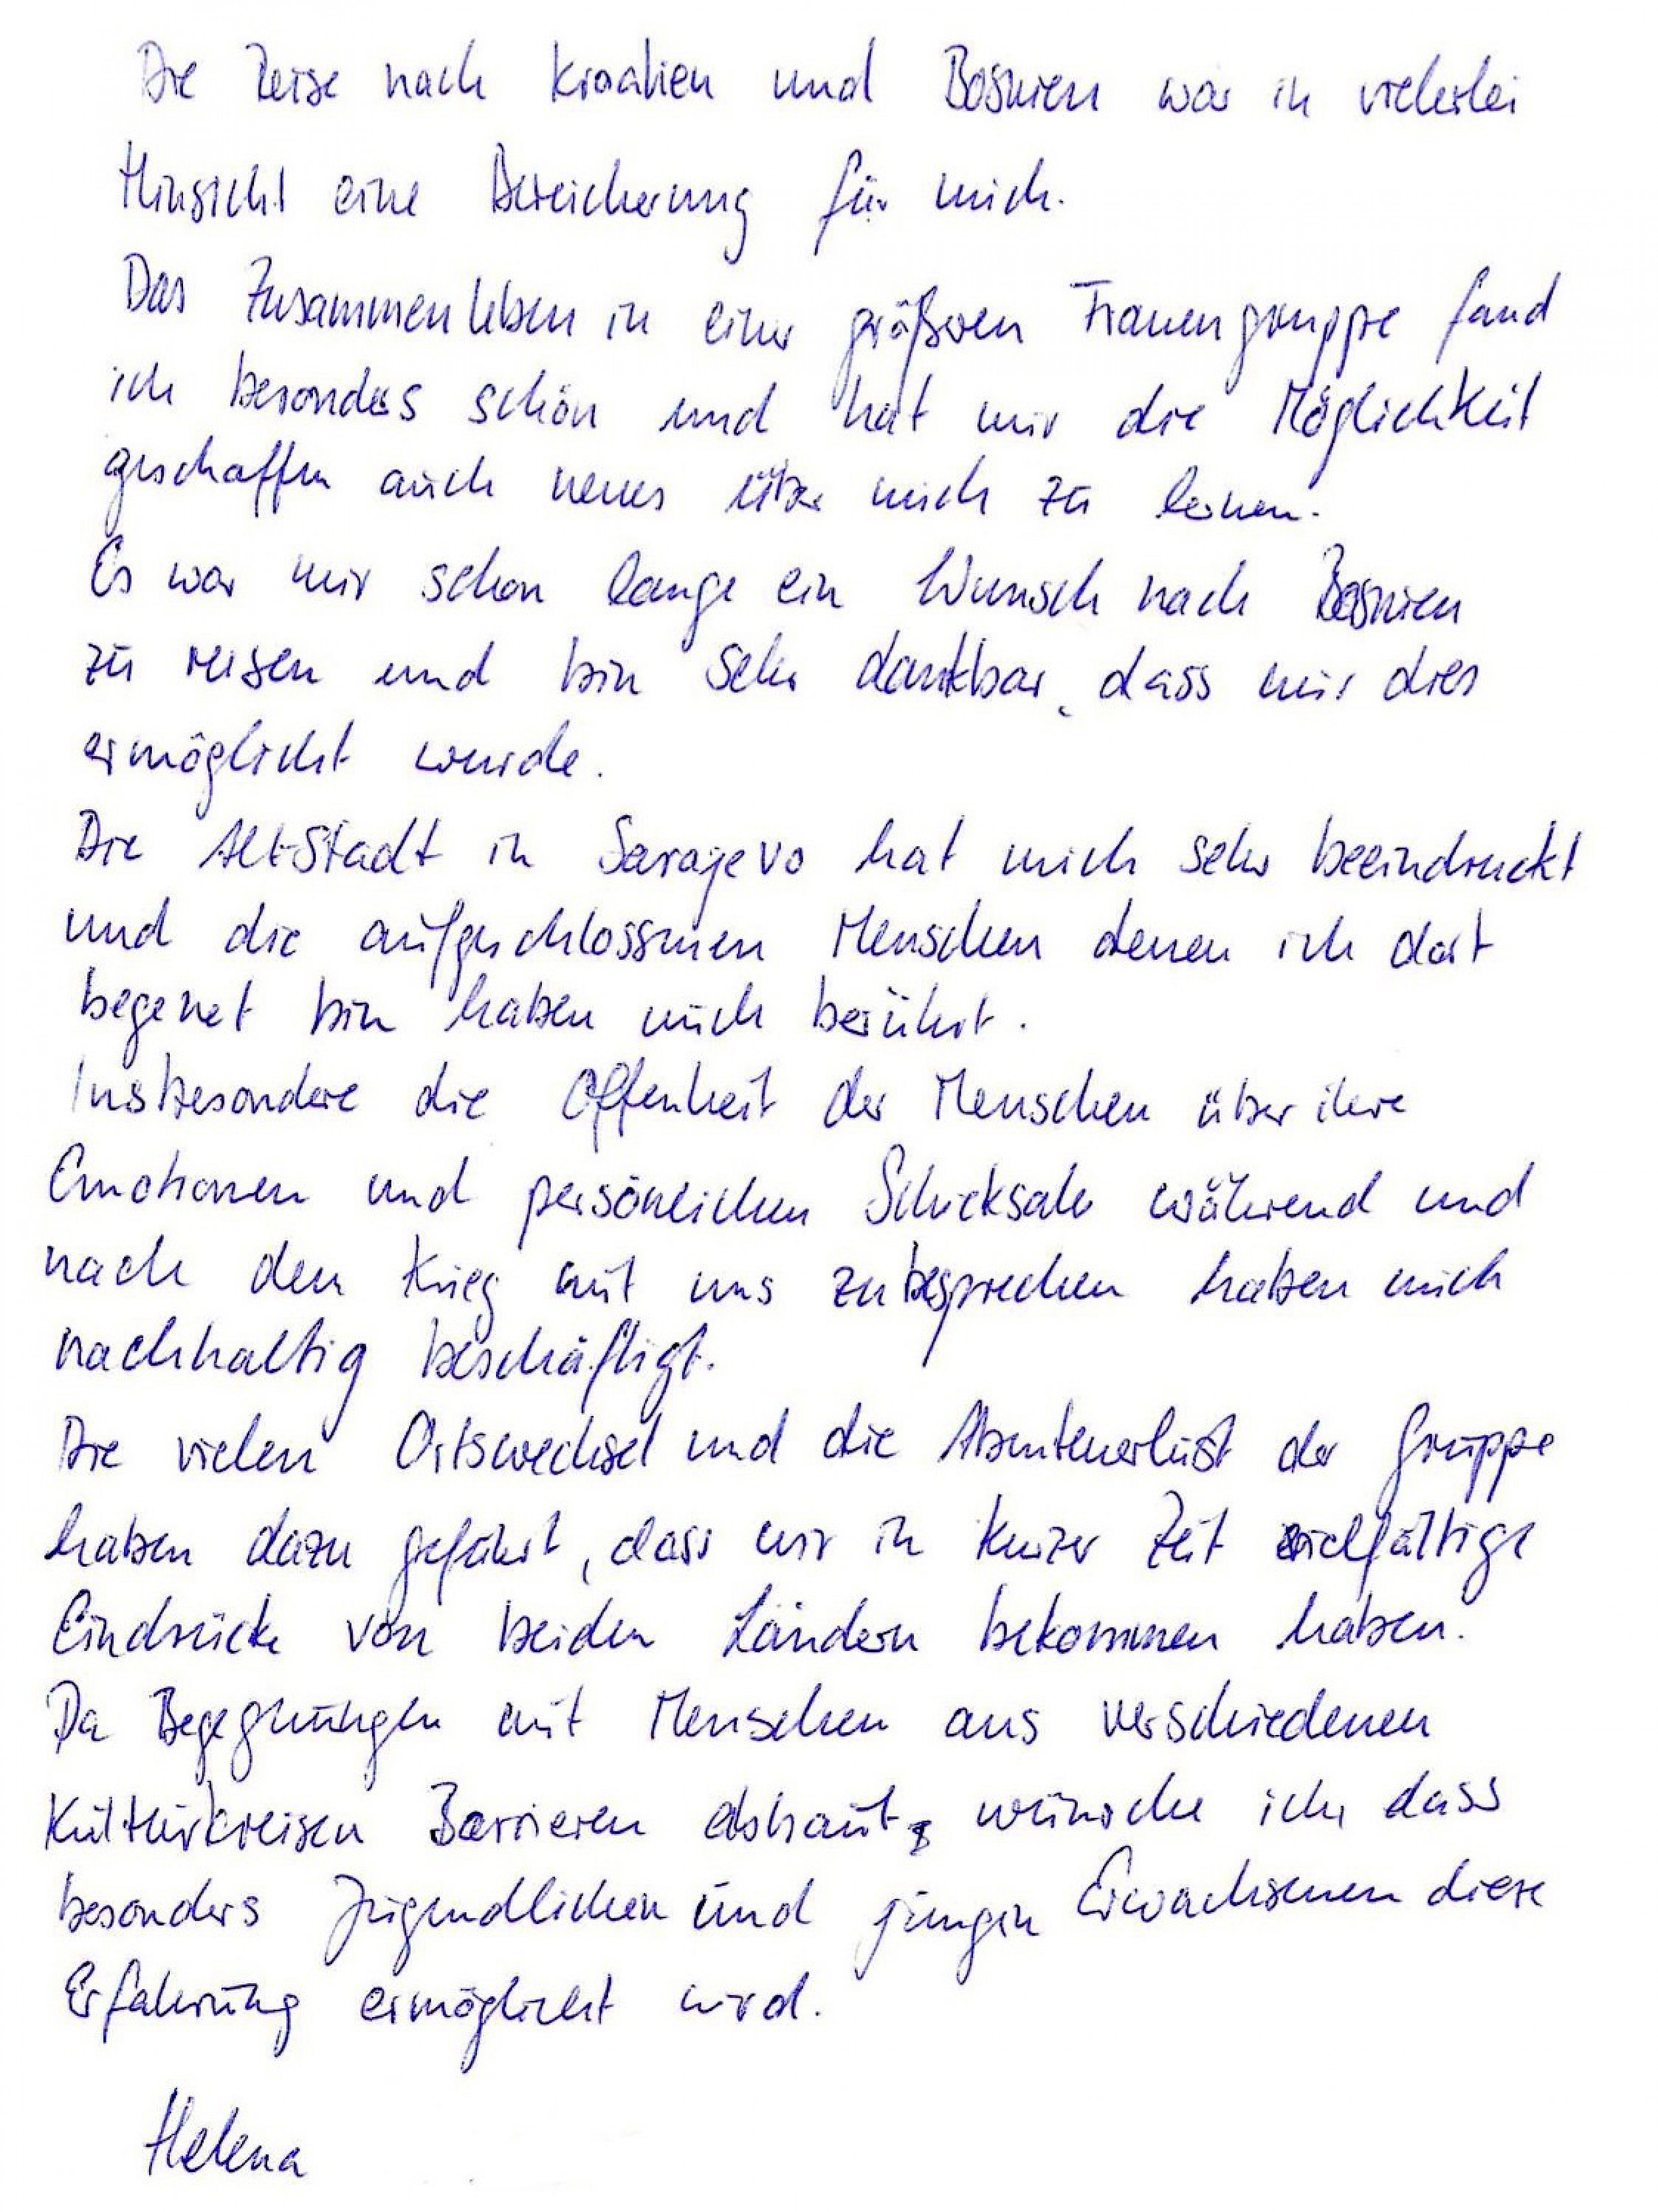 Die Reise nach Kroatien und Bosnien war in vielerlei
Hinsicht eine Bereicherung für mich.
Das Zusammenleben in einer größeren Frauengruppe fand
ich besonders schön und hat mir die Möglichkeit
geschaffen auch neues über mich zu lernen.
Es war mir schon lange ein Wunsch nach Bosnien
zu reisen und bin sehr dankbar, dass mir dies
ermöglicht wurde.
Die Alt-Stadt in Sarajevo hat mich sehr beeindruckt
und die aufgeschlossenen Menschen denen ich dort
begenet bin haben mich berührt.
Insbesondere die Offenheit der Menschen über ihre
Emotionen und persönlichen Schicksale während und
nach den Krieg mit uns zubesprechen haben mich
nachhaltig beschäftigt.
Die vielen Ortswechsel und die Abenteuerlust der Gruppe
haben dazu geführt, dass wir in kurzer Zeit vielfältige
Eindrücke von beiden Ländern bekommen haben.
Da Begegnungen mit Menschen aus verschiedenen
Kulturkreisen Barrieren abbaut, wünsche ich, dass
besonders Jugendlichen und jungen Erwachsenen diese
Erfahrung ermöglicht wird.
Helena